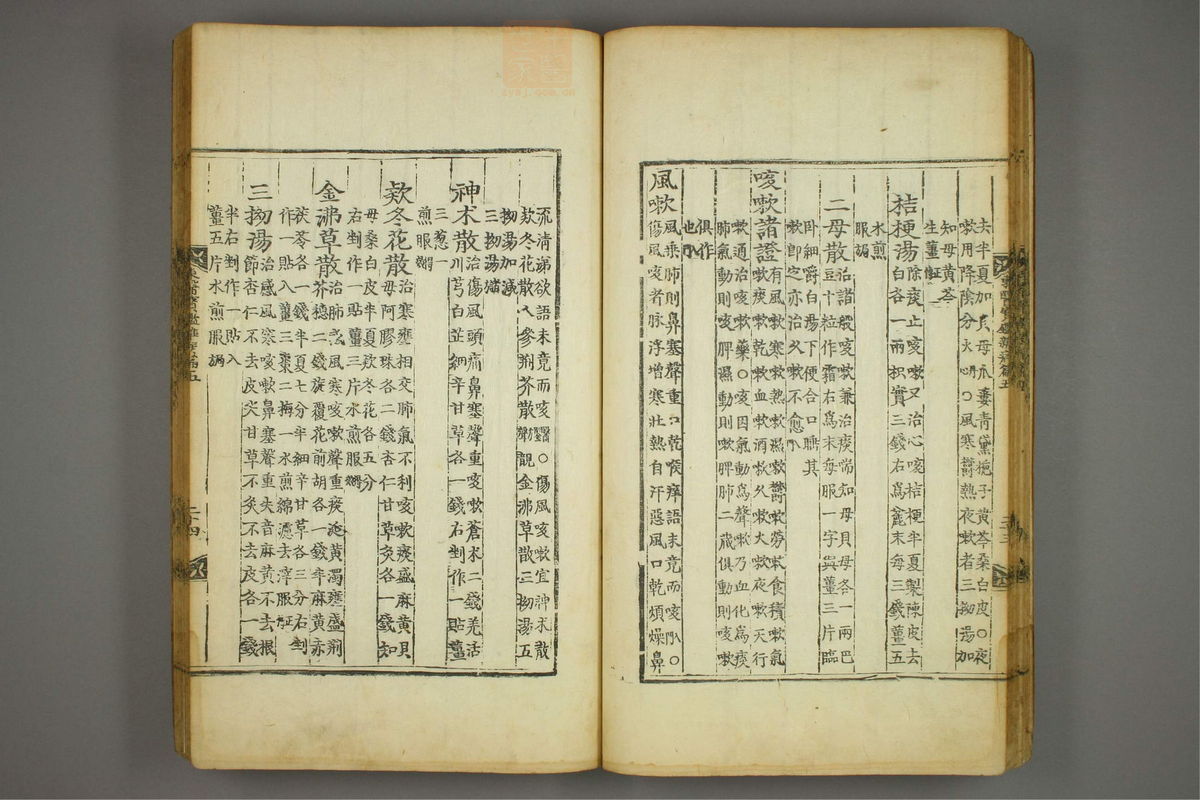 去半夏加貝母瓜蔞青黛梔子黃芩桑白皮○夜
嗽用降陰分火心○風寒鬱熱夜嗽者三拗湯加
知母黃芩
生薑
桔梗湯
除痰止咳嗽又治心咳桔梗半夏製陳皮去
白各一兩枳實三錢右爲麄末每三錢薑五
水煎
服
二母散
治諸般咳嗽兼治痰喘知母貝母各一兩巴
豆十粒作霜右爲末每服一字與薑三片臨
臥細嚼白湯下便合口睡其
嗽卽之亦治久嗽不愈
咳嗽諸證
有風嗽寒嗽熱嗽濕嗽鬱嗽勞嗽食積嗽氣
嗽痰嗽乾嗽血嗽酒嗽久嗽火嗽夜嗽天行
嗽通治咳嗽藥○咳因氣動爲聲嗽乃血化爲痰
肺氣動則咳脾濕動則嗽脾肺二藏俱動則咳嗽
俱作
也
風嗽
風乘肺則鼻塞聲重口乾喉痒語未竟而咳○
傷風咳者脉浮增寒壯熱自汗惡風口乾煩燥鼻
流淸涕欲語未竟而咳○傷風咳嗽宜神朮散
欵冬花散人參荊芥散金沸草散三拗湯五
拗湯加減
三拗湯
神朮散
治傷風頭痛鼻塞聲重咳嗽蒼朮二錢羌活
川芎白芷細辛甘草各一錢右剉作一貼薑
三葱一
煎服
欵冬花散
治寒壅相交肺氣不利咳嗽痰盛麻黃貝
母阿膠珠各二錢杏仁甘草灸各一錢知
母桑白皮半夏欵冬花各五分
右剉作一貼薑三片水煎服
金沸草散
治肺感風寒咳嗽聲重痰涎黃濁壅盛荊
芥穗二錢旋覆花前胡各一錢半麻黃赤
茯苓各一錢半夏七分半細辛甘草各三分右剉
作一貼入薑三棗二梅一水煎綿濾去滓服
三拗湯
治感風寒咳嗽鼻塞聲重失音麻黃不去根
節杏仁不去皮尖甘草不灸不去皮各一錢
半右剉作一貼入
薑五片水煎服